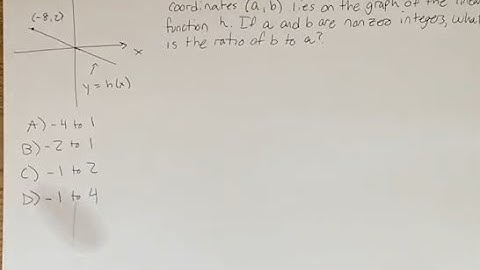 coordinates (a, b) lies on the graph of the
function h. If a and b are nonzero integers,
is the ratio of b to a?
(-8, 2)
x
y = h(x)
A) -4 to 1
B) -2 to 1
C) -1 to 2
D) -1 to 4